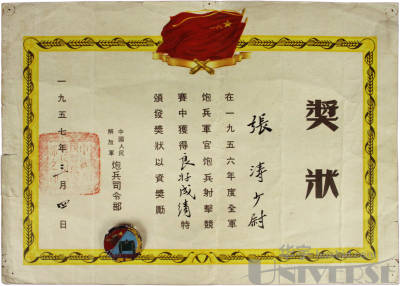 獎狀
張濤少尉
在一九五六年度全軍
炮兵軍官炮兵射擊競
賽中獲得良好成績特
頒發獎狀以資獎勵
中國人民
解放軍
炮兵司令部
一九五七年三月四日
UNIVERSE